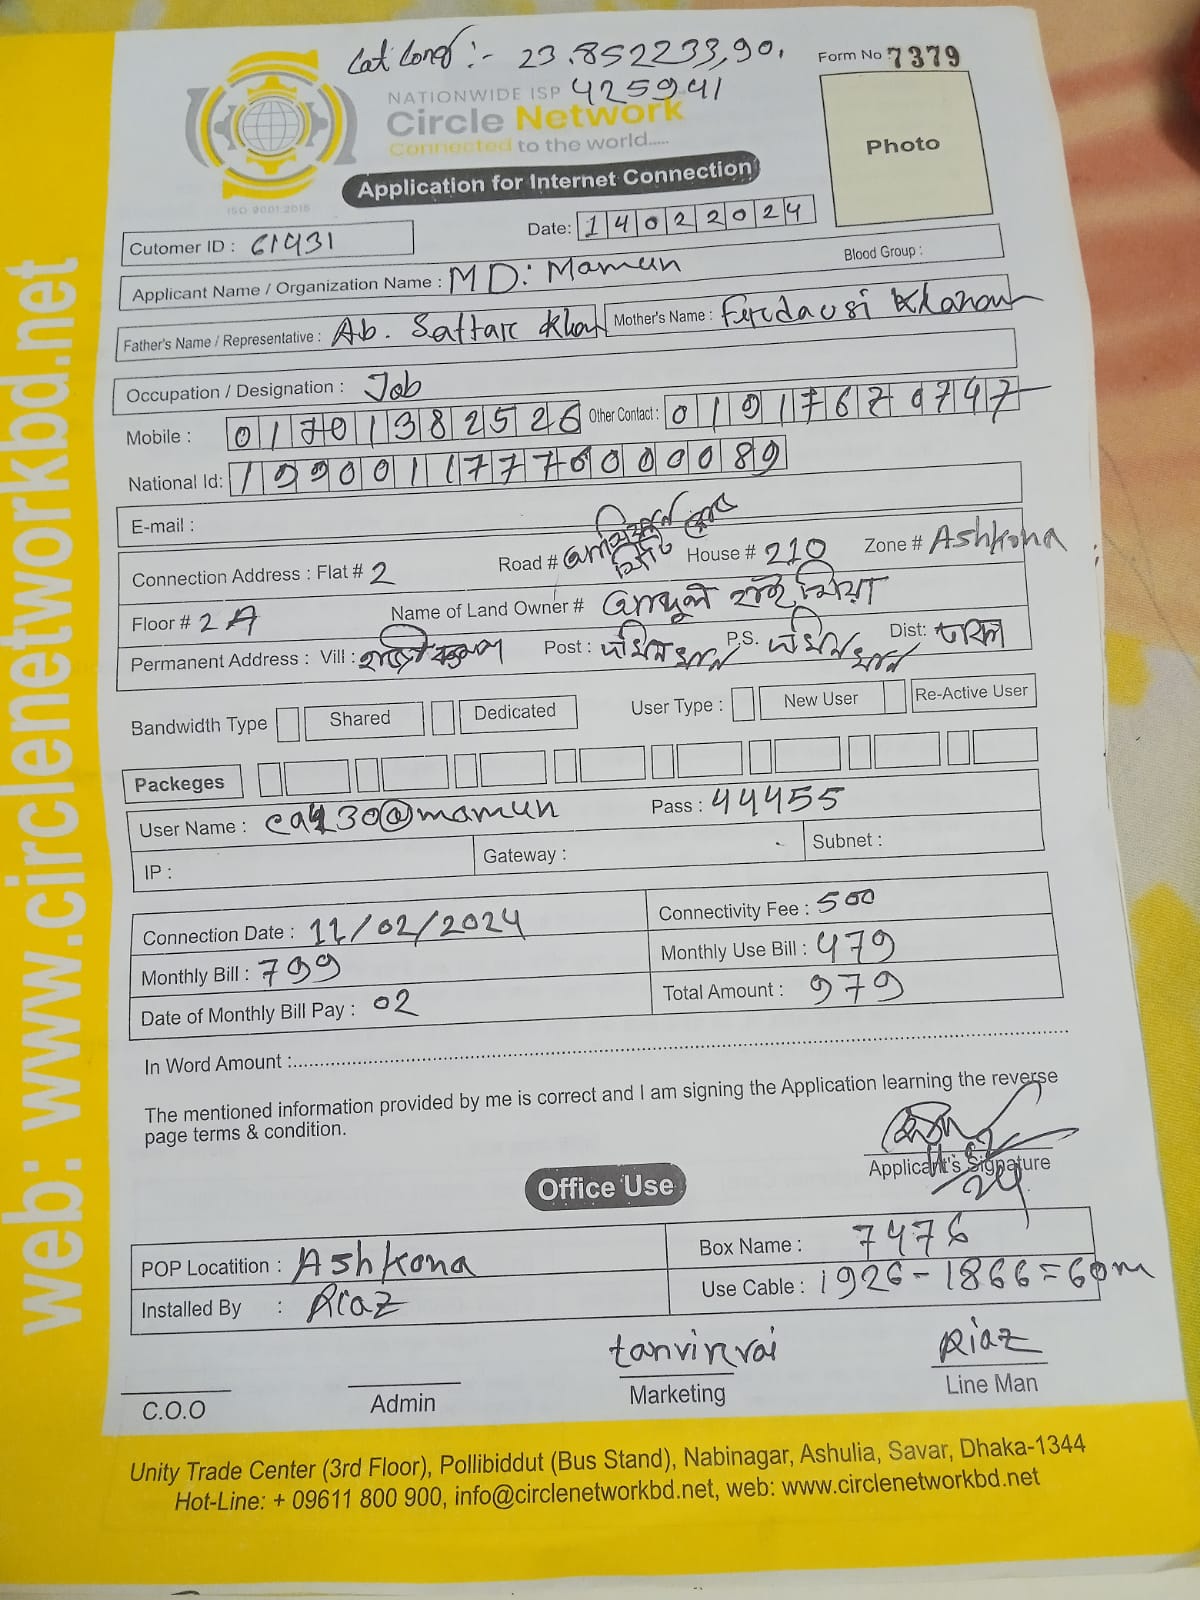 Lat Long :- 23.852233,90.
425941
Form No 7379
NATIONWIDE ISP
Circle Network
Connected to the world.....
ISO 9001:2015
Application for Internet Connection
Photo
Cutomer ID : 61431
Date: 14022024
Applicant Name / Organization Name : MD: Mamun
Blood Group :
Father's Name / Representative : Ab. Sattar Khan
Mother's Name : Ferdausi Khanom
Occupation / Designation : Job
Mobile : 01701382526 Other Contact : 01917670747
National Id: 19900117776000089
E-mail :
Connection Address : Flat # 2 Road # House # 210 Zone # Ashkona
Floor # 2A Name of Land Owner # আব্দুল হাই মিয়া
Permanent Address : Vill : Post : দক্ষিনখান P.S. দক্ষিনখান Dist: ঢাকা
Bandwidth Type Shared Dedicated User Type : New User Re-Active User
Packeges
User Name : Pass : 44455
IP : Gateway : Subnet :
Connection Date : 11/02/2024 Connectivity Fee : 500
Monthly Bill : 799 Monthly Use Bill : 479
Date of Monthly Bill Pay : 02 Total Amount : 979
In Word Amount :
The mentioned information provided by me is correct and I am signing the Application learning the reverse
page terms & condition.
Applicant's Signature
Office Use
POP Locatition : Ashkona Box Name : 7476
Installed By : Riaz Use Cable : 1926-1866=60m
tanvinrai Riaz
C.O.O Admin Marketing Line Man
Unity Trade Center (3rd Floor), Pollibiddut (Bus Stand), Nabinagar, Ashulia, Savar, Dhaka-1344
Hot-Line: + 09611 800 900, info@circlenetworkbd.net, web: www.circlenetworkbd.net
web: www.circlenetworkbd.net